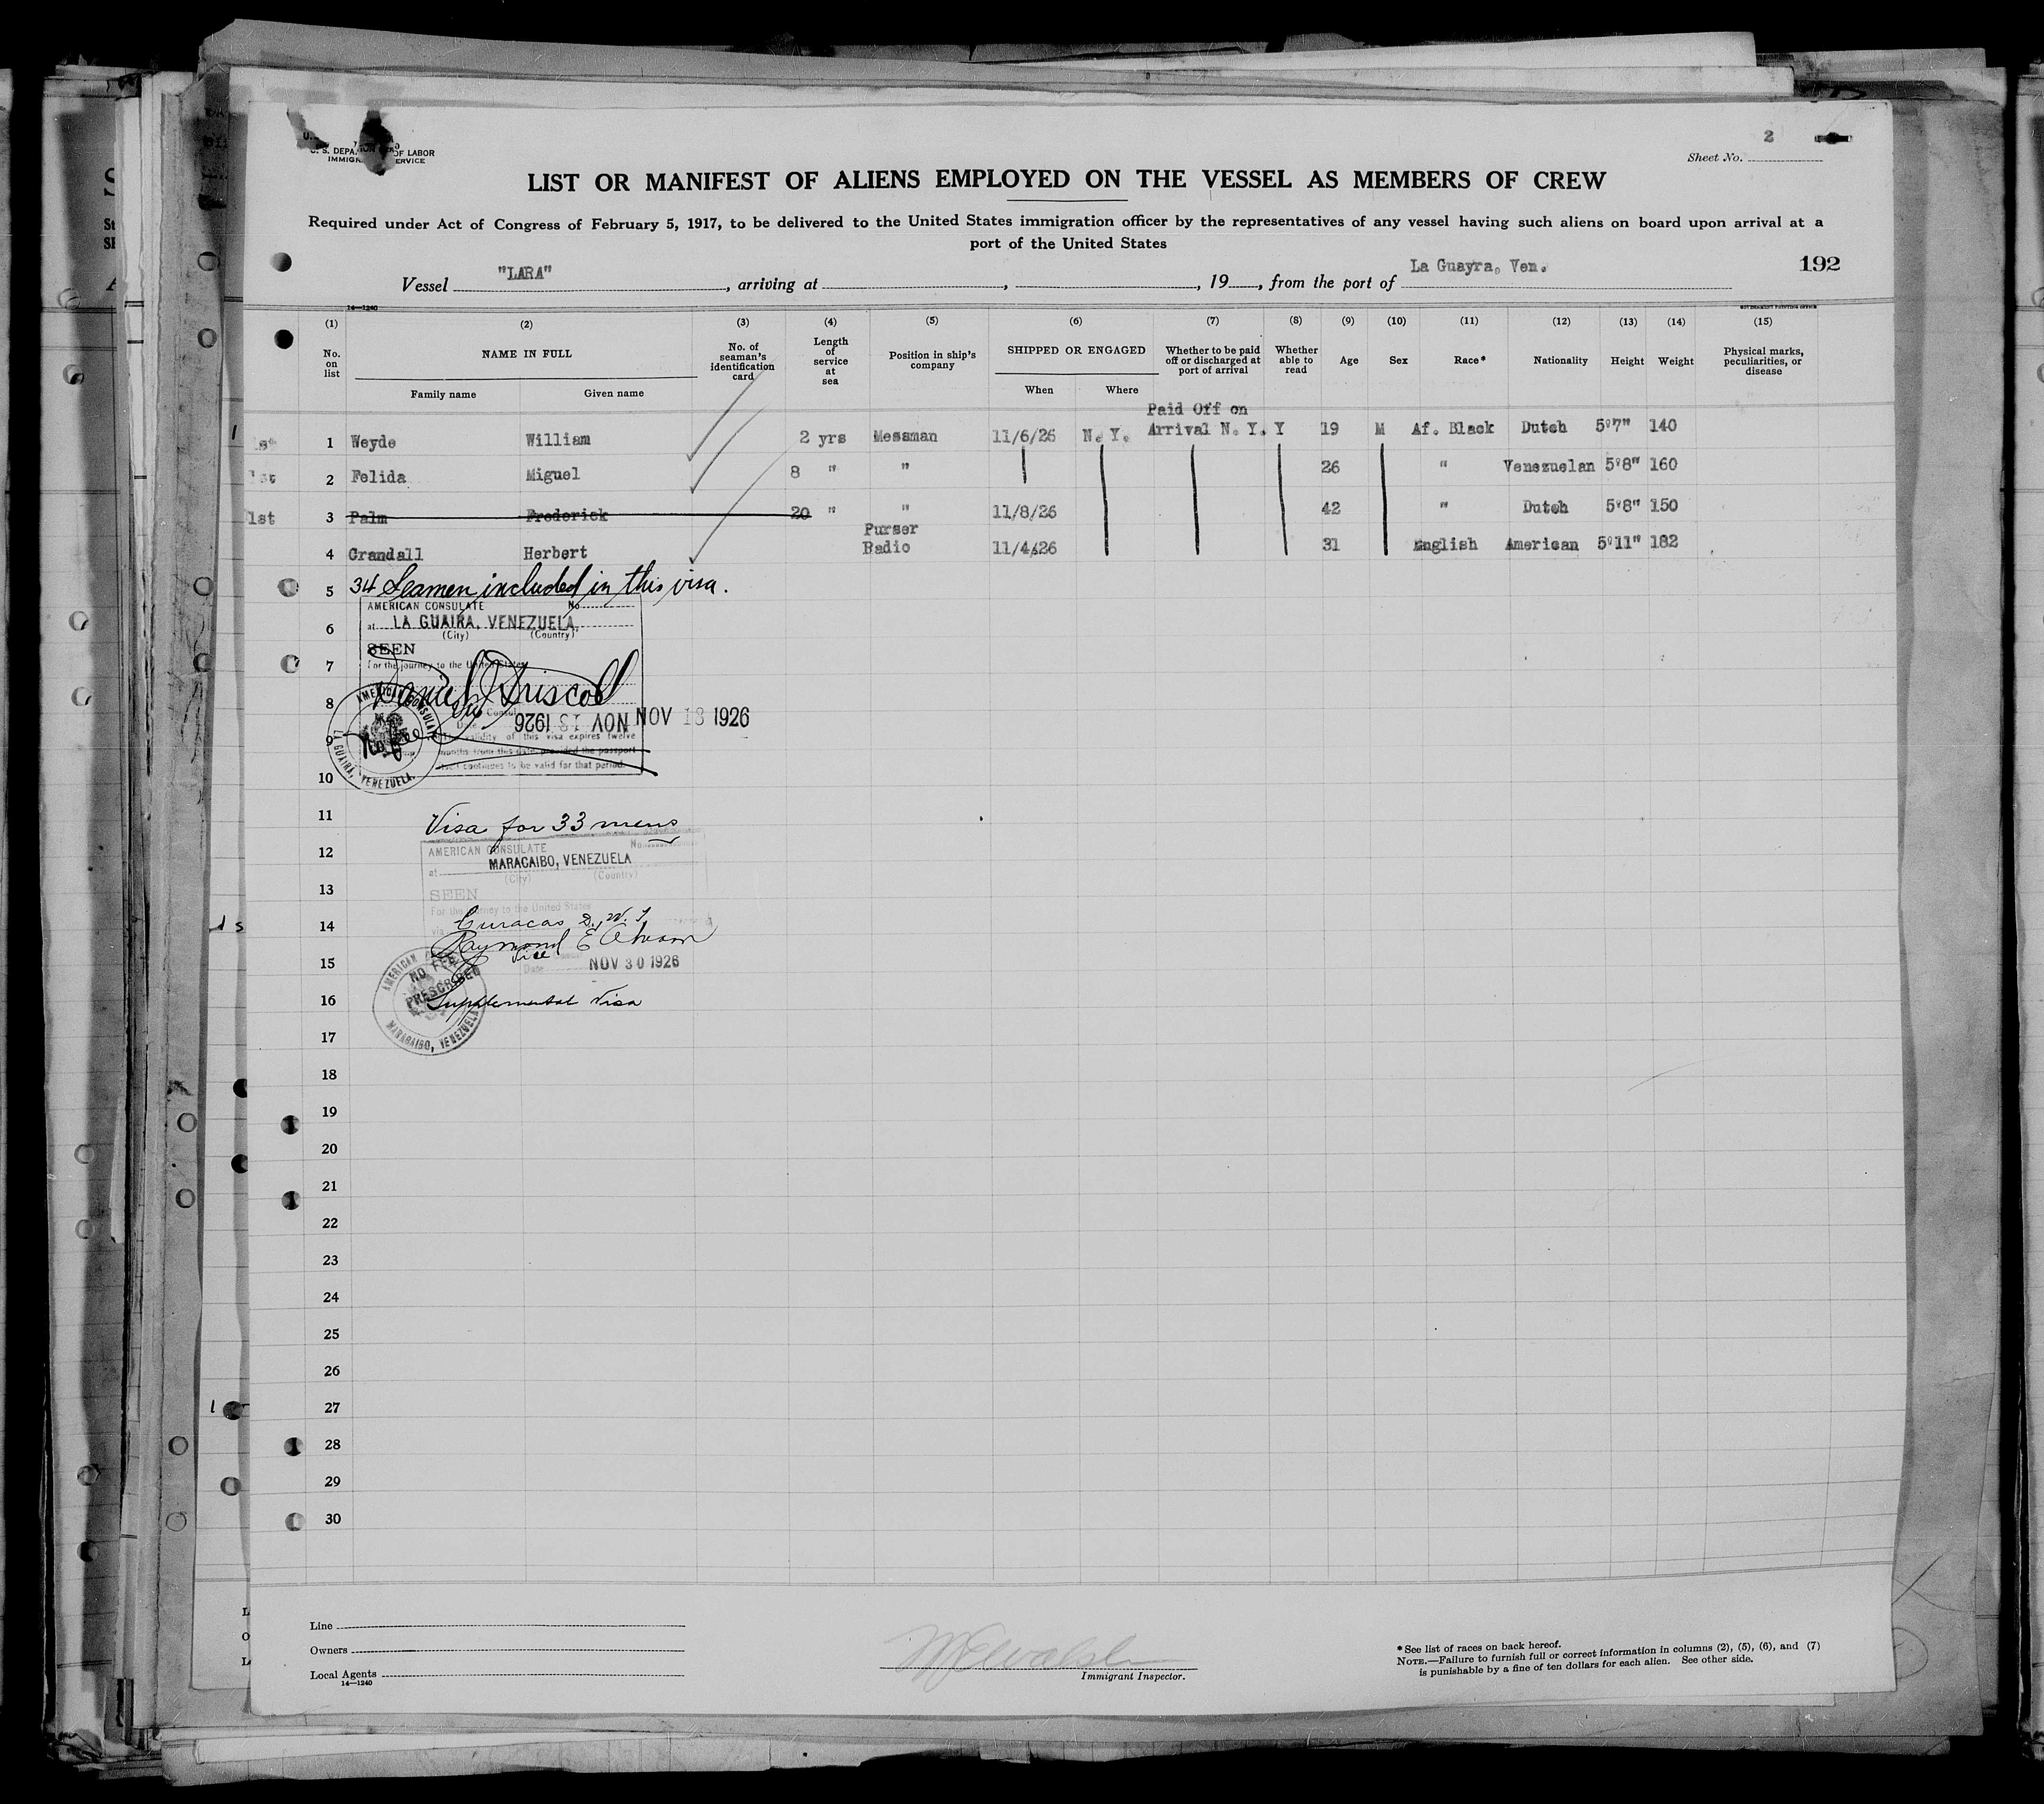 2
Sheet No.
U. S. DEPA OF LABOR
IMMIGR ERVICE
LIST OR MANIFEST OF ALIENS EMPLOYED ON THE VESSEL AS MEMBERS OF CREW
Required under Act of Congress of February 5, 1917, to be delivered to the United States immigration officer by the representatives of any vessel having such aliens on board upon arrival at a
port of the United States
Vessel "LARA", arriving at , , 19 , from the port of La Guayra, Ven.
192
14—1240
GOVERNMENT PRINTING OFFICE
(1) (2) (3) (4) (5) (6) (7) (8) (9) (10) (11) (12) (13) (14) (15)
No. on list NAME IN FULL No. of seaman's identification card Length of service at sea Position in ship's company SHIPPED OR ENGAGED Whether to be paid off or discharged at port of arrival Whether able to read Age Sex Race* Nationality Height Weight Physical marks, peculiarities, or disease
Family name Given name When Where
Paid Off on
1st 1 Weyde William 2 yrs Messman 11/6/26 N. Y. Arrival N. Y. Y 19 M Af. Black Dutch 5'7" 140
1st 2 Felida Miguel 8 " " 26 " Venezuelan 5'8" 160
1st 3 Palm Frederick 20 " " 11/8/26 42 " Dutch 5'8" 150
Purser
4 Grandall Herbert Radio 11/4/26 31 English American 5'11" 182
5 34 Seamen included in this visa.
AMERICAN CONSULATE No
6 at LA GUAIRA, VENEZUELA.
(City) (Country)
SEEN
7 For the journey to the United States
8 Daniel J Driscoll
Consul
Date NOV 18 1926 NOV 18 1926
9 The validity of this visa expires twelve
months from this date provided the passport
itself continues to be valid for that period.
AMERICAN CONSULATE
LA GUAIRA, VENEZUELA.
10
11 Visa for 33 mens
12 AMERICAN CONSULATE No.
at MARACAIBO, VENEZUELA
(City) (Country)
13
SEEN
For the journey to the United States
14 via Curacao D. W. I.
Raymond E
Vice
15 Date NOV 30 1926
AMERICAN
NO FEE
PRESCRIBED
MARACAIBO, VENEZUELA
16 Supplemental Visa
17
18
19
20
21
22
23
24
25
26
27
28
29
30
Line
Owners
Local Agents
14—1240
Immigrant Inspector.
* See list of races on back hereof.
NOTE.—Failure to furnish full or correct information in columns (2), (5), (6), and (7)
is punishable by a fine of ten dollars for each alien. See other side.